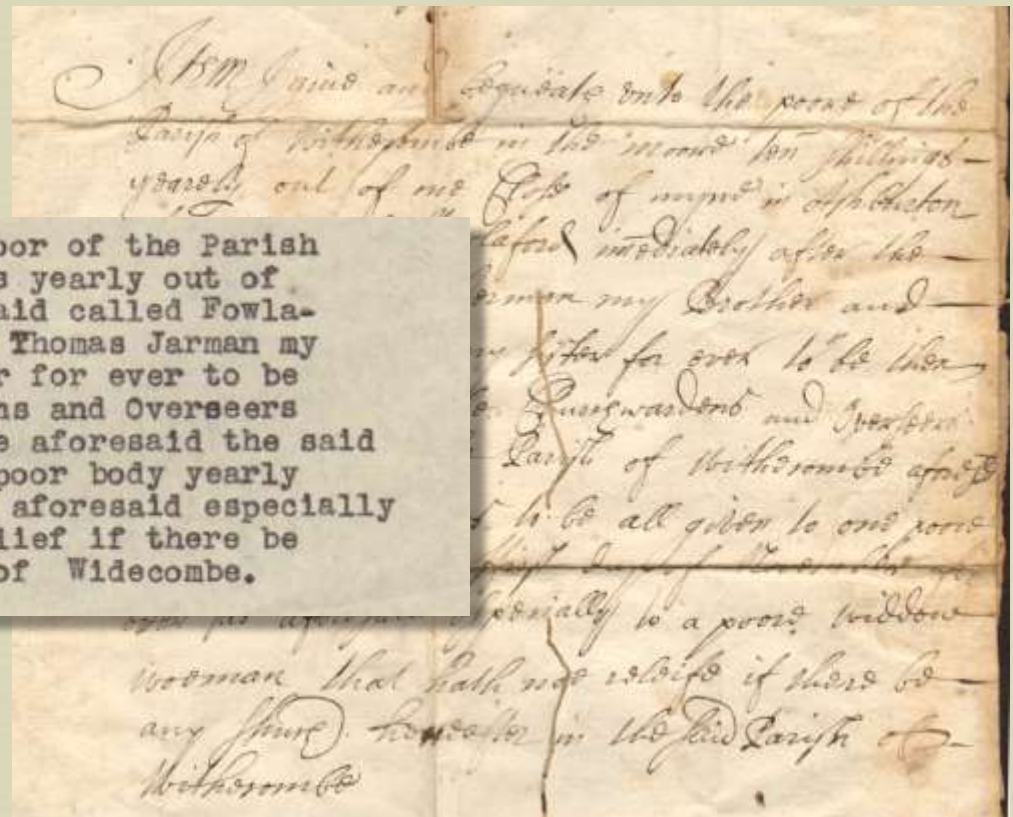 Item I give and bequeate unto the poore of the
Parish of Withecombe in the moore ten shillings
yearely out of one Close of myne in Ashburton
laford immediately after the
erman my Brother and
sister for ever to be then
Purchwardens and Overseers
Parish of Withecombe afores
to be all given to one poore
ever as especially to a poore widdow
woeman that hath noe releife if there be
any hereafter in the said Parish of
Withecombe
oor of the Parish
s yearly out of
aid called Fowla-
Thomas Jarman my
r for ever to be
ns and Overseers
e aforesaid the said
poor body yearly
aforesaid especially
lief if there be
of Widecombe.